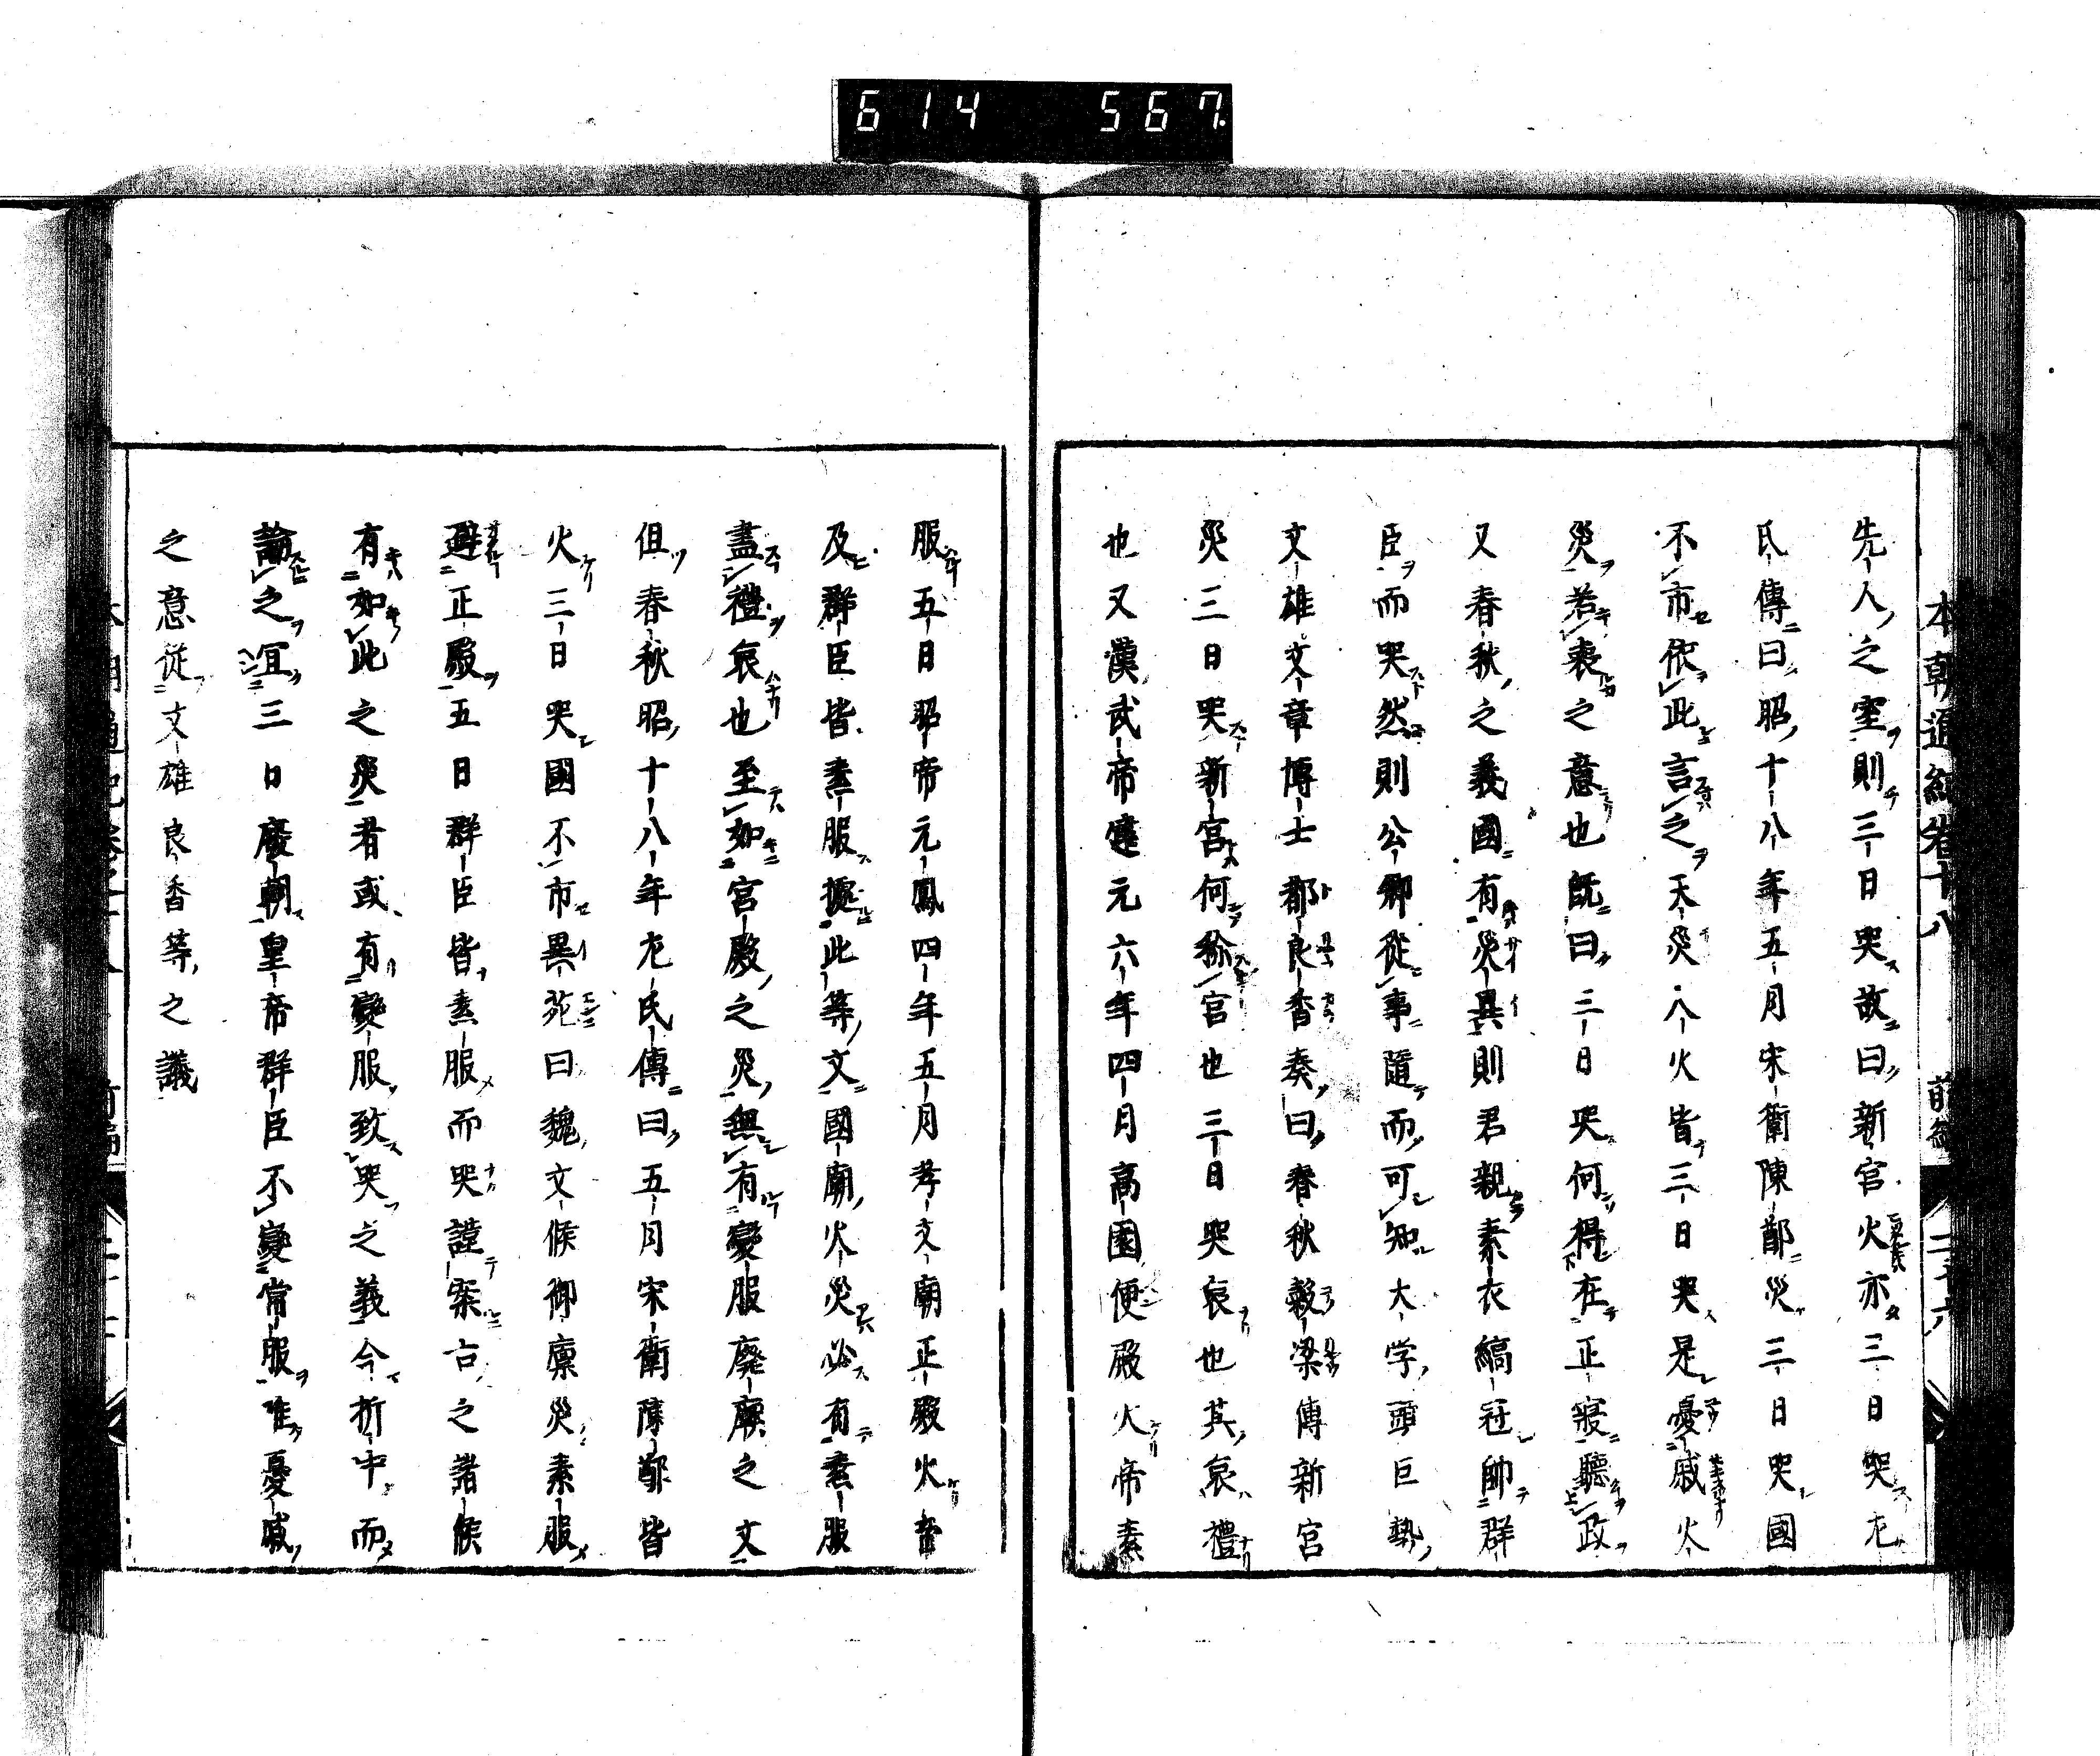 614 567
本朝通紀卷十八 前編
先人之室則三日哭故曰新宮火亦三日哭左
氏傳曰昭十八年五月宋衛陳鄭災三日哭國
不市依此言之天災人火皆三日哭是憂戚火
災若喪之意也既曰三日哭何得在正寢聽政
又春秋之義國有災異則君親素衣縞冠帥群
臣而哭然則公卿從事隨而可知大学頭巨勢
文雄文章博士都良香奏曰春秋穀梁傳新宮
災三日哭新宮何祢宮也三日哭哀也其哀禮
也又漢武帝建元六年四月高園便殿火帝素
服五日昭帝元鳳四年五月孝文廟正殿火帝
及群臣皆素服據此等文國廟火災必有素服
盡禮哀也至如宮殿之災無有變服廢朝之文
但春秋昭十八年左氏傳曰五月宋衛陳鄭皆
火三日哭國不市異苑曰魏文侯御廩災素服
避正殿五日群臣皆素服而哭謹案古之諸侯
有如此之災者或有變服致哭之義今折中而
論之宜三日廢朝皇帝群臣不變常服唯憂戚
之意從文雄良香等之議